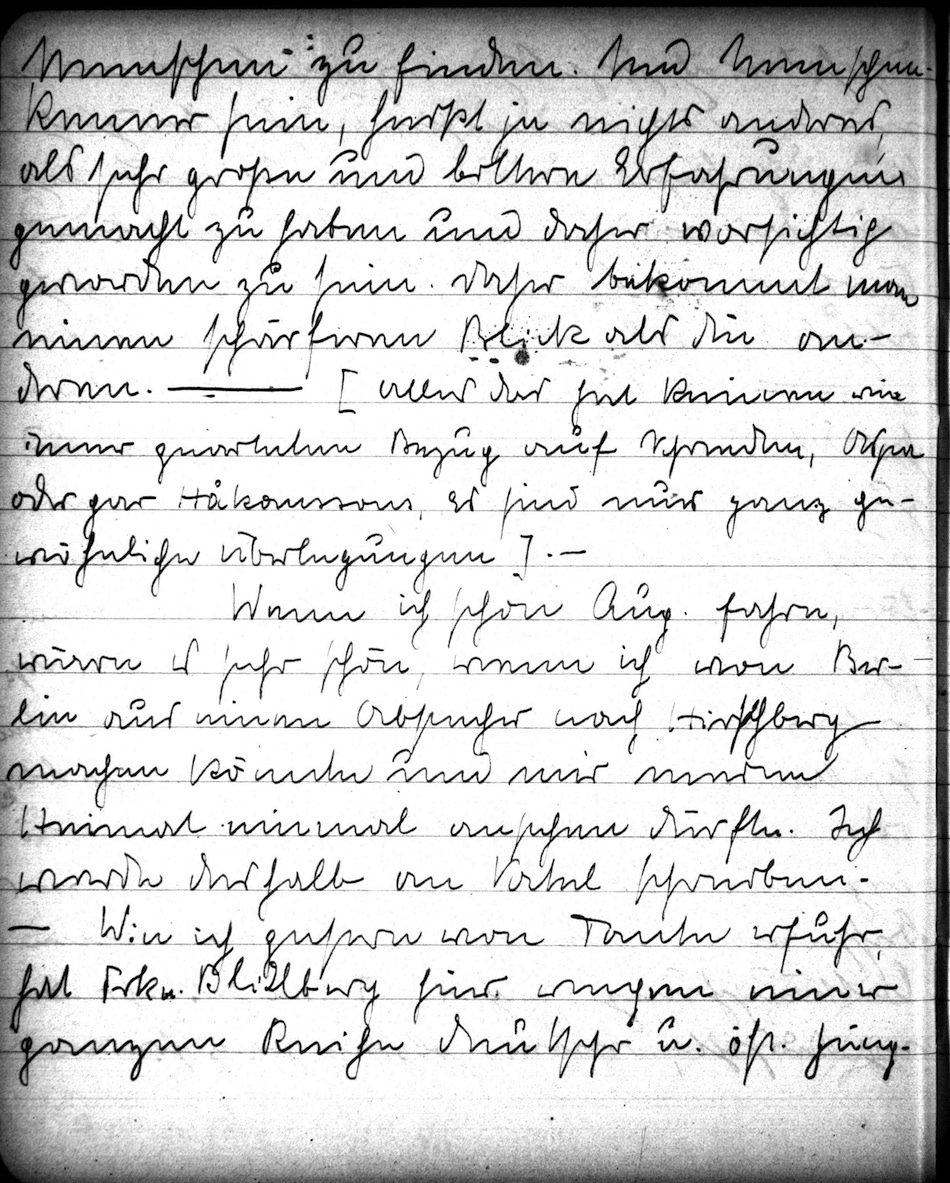 Menschen zu finden. Und Menschen-
kenner sein, heißt ja nichts anderes,
als sehr große und bittere Erfahrungen
gemacht zu haben und daher vorsichtig
geworden zu sein. Daher bekommt man
einen schärferen Blick als die an-
deren. — [Alles das hat keinen wie
immer gearteten Bezug auf
oder gar Håkanssons, es sind nur ganz ge-
wöhnliche Überlegungen]. —
Wenn ich schon Aug. fahre,
wäre es sehr schön, wenn ich von Ber-
lin aus einen Abstecher nach Hirschberg
machen könnte und mir meine
Heimat einmal ansehen dürfte. Ich
werde deshalb an Vatel schreiben.
— Wie ich gestern von Tante erfuhr,
hat Frkn. hier wegen einer
ganzen Reihe deutscher u. öst. Jung-